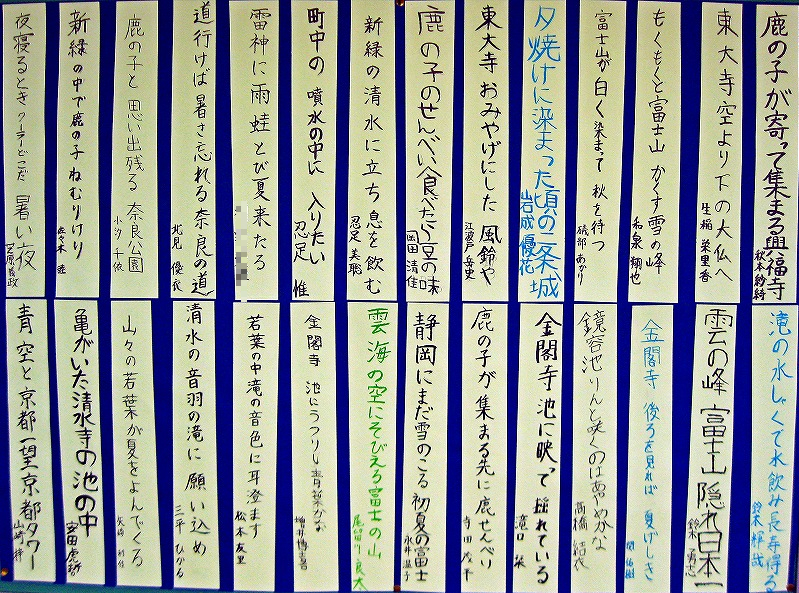 鹿の子が寄って集まる興福寺
秋本 紗綺
東大寺空より下の大仏へ
生稲 菜里香
もくもくと富士山かくす雪の峰
和泉 翔也
富士山が白く染まって秋を待つ
磯部 あかり
夕焼けに染まった頃の二条城
岩成 優花
東大寺おみやげにした風鈴や
江波戸 岳史
鹿の子のせんべい食べたら豆の味
岡田 清佳
新緑の清水に立ち息を飲む
忍足 美聡
町中の噴水の中に入りたい
忍足 惟
雷神に雨蛙とび夏来たる
道行けば暑さ忘れる奈良の道
北見 優衣
鹿の子と思い出残る奈良公園
小汐 千依
新緑の中で鹿の子ねむりけり
佐々木 陸
夜寝るときクーラーどこだ暑い夜
義政
滝の水しゃくで水飲み長寿得る
鈴木 輝哉
雲の峰富士山隠れ日本一
鈴木 勇志
金閣寺後ろを見れば夏げしき
関 佑樹
鏡容池りんと咲くのはあやめかな
髙橋 結衣
金閣寺池に映って揺れている
滝口 栞
鹿の子が集まる先に鹿せんべい
寺田 茂平
静岡にまだ雪のこる初夏の富士
永井 温子
雲海の空にそびえる富士の山
尾留川 良太
金閣寺池にうつりし青葉かな
増井 博喜
若葉の中滝の音色に耳澄ます
松本 友里
清水の音羽の滝に願い込め
三平 ひかる
山々の若葉が夏をよんでくる
矢崎
亀がいた清水寺の池の中
安田 虎哲
青空と京都一望京都タワー
山崎 梓